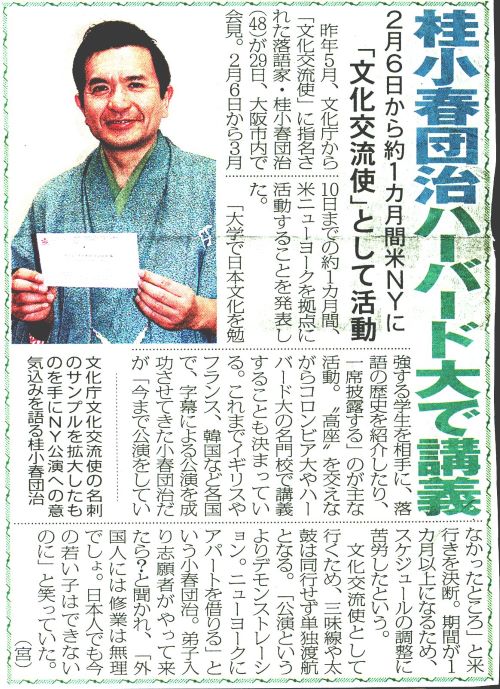 桂小春団治ハーバード大で講義
２月６日から約１カ月間米ＮＹに
「文化交流使」として活動
昨年５月、文化庁から
「文化交流使」に指名さ
れた落語家・桂小春団治
（48）が29日、大阪市内で
会見。２月６日から３月
10日までの約１カ月間、
米ニューヨークを拠点に
活動することを発表し
た。
「大学で日本文化を勉
強する学生を相手に、落
語の歴史を紹介したり、
一席披露する」のが主な
活動。〝高座〟を交えな
がらコロンビア大やハー
バード大の名門校で講義
することも決まってい
る。これまでイギリスや
フランス、韓国など各国
で、字幕による公演を成
功させてきた小春団治だ
が「今まで公演をしてい
なかったところ」と米
行きを決断。期間が１
カ月以上になるため、
スケジュールの調整に
苦労したという。
文化交流使として
行くため、三味線や太
鼓は同行せず単独渡航
となる。「公演という
よりデモンストレーシ
ョン。ニューヨークに
アパートを借りる」と
いう小春団治。弟子入
り志願者がやって来
たら？と聞かれ、「外
国人には修業は無理
でしょ。日本人でも今
の若い子はできない
のに」と笑っていた。
（宮）
文化庁文化交流使の名刺
のサンプルを拡大したも
のを手にＮＹ公演への意
気込みを語る桂小春団治